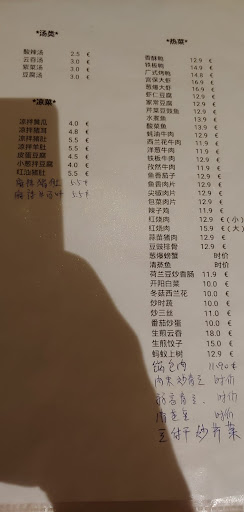 *汤类*
酸辣汤 2.5 €
云吞汤 3.0 €
紫菜汤 3.0 €
豆腐汤 3.0 €
*凉菜*
凉拌黄瓜 4.0 €
凉拌猪耳 4.8 €
凉拌猪肚 5.5 €
凉拌羊肚 5.5 €
皮蛋豆腐 4.5 €
小葱拌豆腐 4.0 €
红油猪肚 5.5 €
5.5 €
5.5 €
*热菜*
香酥鸭 12.9 €
铁板鸭 14.9 €
广式烤鸭 14.8 €
宫保大虾 16.9 €
葱爆大虾 16.9 €
虾仁豆腐 12.9 €
家常豆腐 12.9 €
芹菜豆豉鱼 12.9 €
水煮鱼 13.9 €
酸菜鱼 13.9 €
蚝油牛肉 12.9 €
西兰花牛肉 11.9 €
洋葱牛肉 11.9 €
铁板牛肉 12.9 €
孜然牛肉 11.9 €
鱼香茄子 12.9 €
鱼香肉片 12.9 €
尖椒肉片 12.9 €
包菜肉片 12.9 €
辣子鸡 11.9 €
红烧肉 12.9 € (小)
红烧肉 15.9 € (大)
蒜苗猪肉 12.9 €
豆豉排骨 12.9 €
葱爆螃蟹 时价
清蒸鱼 时价
荷兰豆炒香肠 11.9 €
开阳白菜 10.0 €
冬菇西兰花 10.0 €
炒时蔬 10.0 €
炒三丝 11.0 €
番茄炒蛋 10.0 €
生煎云吞 18.0 €
生煎饺子 15.0 €
蚂蚁上树 12.9 €
锅包肉 11.90 €
时价
时价
时价
豆付干炒芹菜